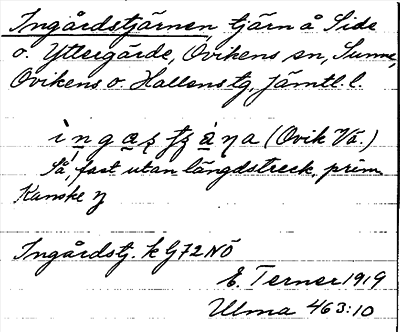 Ingårdstjärnen, tjärn å Side
o. Yttergärde, Ovikens sn, Sunne,
Ovikens o. Hallens tg, Jämtl. l.
(Ovik Vä.)
Så, fast utan längdstreck, prim
Kanske ŋ
Ingårdstj. k G72NÖ
E. Terner 1919
Ulma 463:10